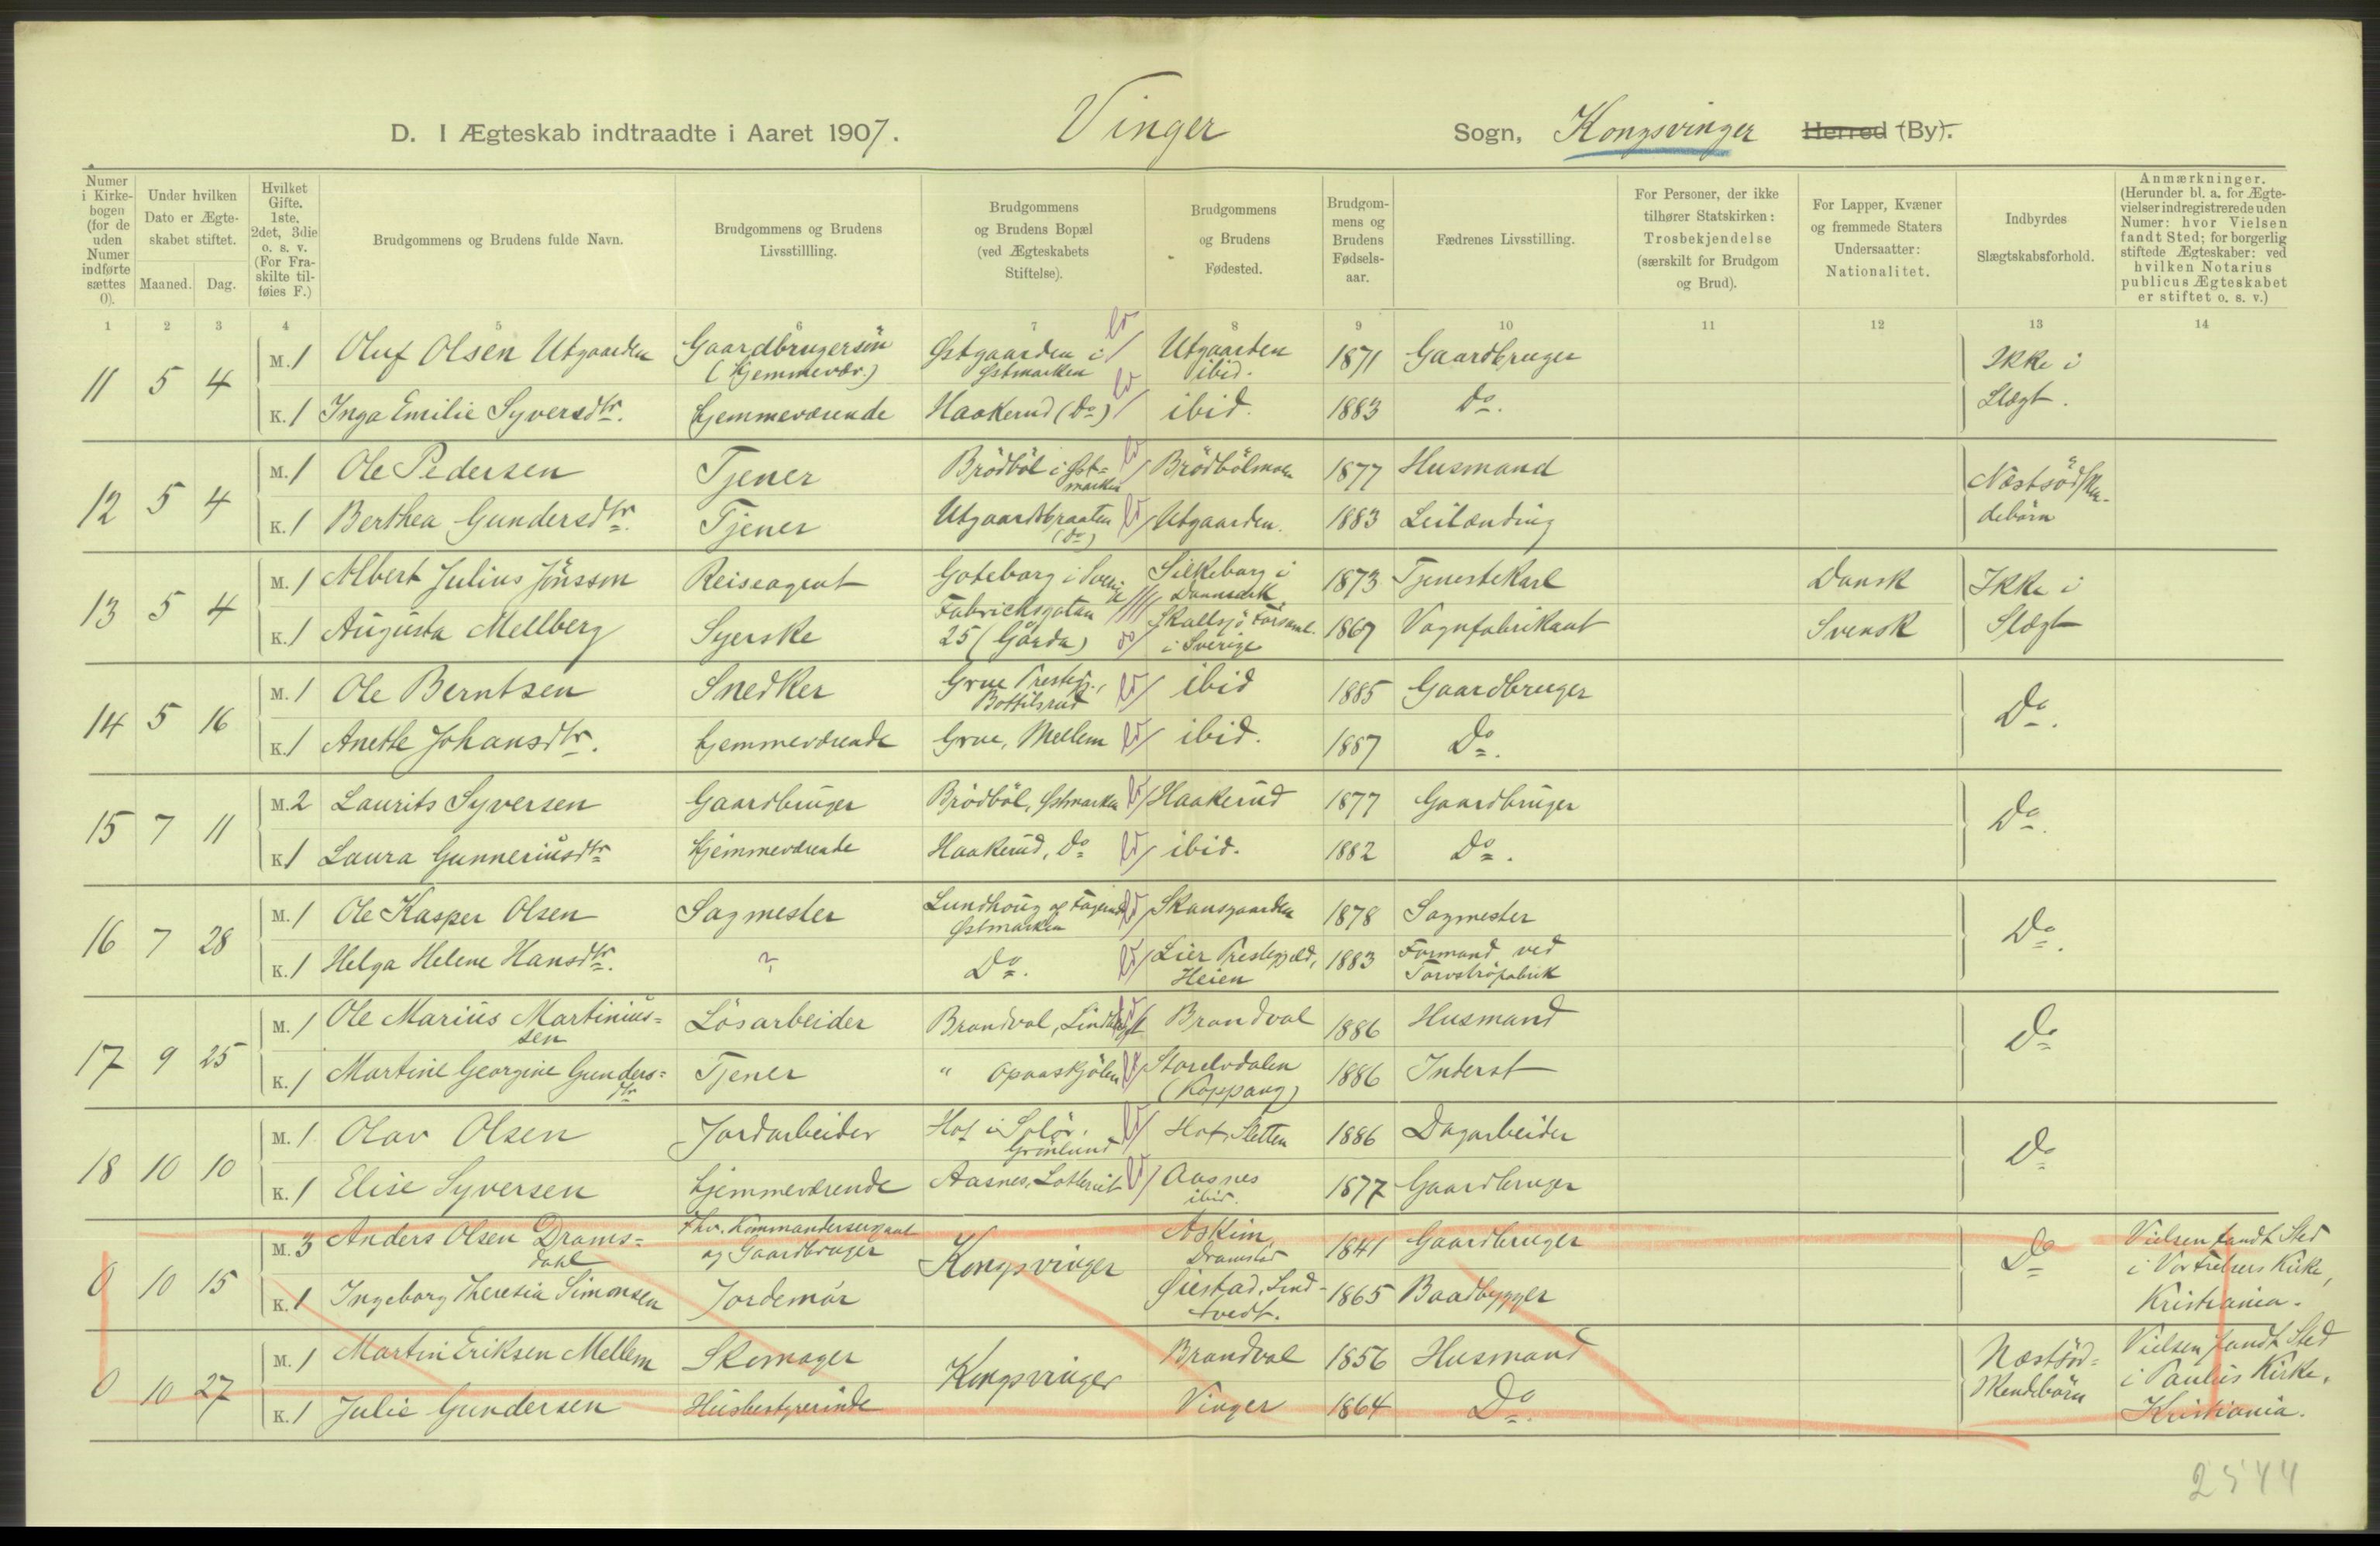 D. I Ægteskab indtraadte i Aaret 1907. Vinger Sogn, Kongsvinger Herred (By).
Numer i Kirkebogen (for de uden Numer indførte sættes 0).
Under hvilken Dato er Ægteskabet stiftet.
Maaned. Dag.
Hvilket Gifte. 1ste, 2det, 3die o. s. v. (For Fraskilte tilføies F.)
Brudgommens og Brudens fulde Navn.
Brudgommens og Brudens Livsstillling.
Brudgommens og Brudens Bopæl (ved Ægteskabets Stiftelse).
Brudgommens og Brudens Fødested.
Brudgommens og Brudens Fødselsaar.
Fædrenes Livsstilling.
For Personer, der ikke tilhører Statskirken: Trosbekjendelse (særskilt for Brudgom og Brud).
For Lapper, Kvæner og fremmede Staters Undersaatter: Nationalitet.
Indbyrdes Slægtskabsforhold.
Anmærkninger. (Herunder bl. a. for Ægtevielser indregistrerede uden Numer: hvor Vielsen fandt Sted; for borgerlig stiftede Ægteskaber: ved hvilken Notarius publicus Ægteskabet er stiftet o. s. v.)
1 2 3 4 5 6 7 8 9 10 11 12 13 14
11 5 4 M. 1 Oluf Olsen Utgaarden Gaardbrugersön (hjemmevær.) Østgaarden i Østmarken Utgaarden ibid. 1871 Gaardbruger Ikke i Slægt.
K. 1 Inga Emilie Syversdtr. hjemmeværende Haakerud (Do) ibid. 1883 Do.
12 5 4 M. 1 Ole Pedersen Tjener Brödböl i Østmarken Brödbölmoen 1877 Husmand Næstsödskendebörn
K. 1 Berthea Gundersdtr. Tjener Utgaardsbraaten (Do) Utgaarden. 1883 Leilænding
13 5 4 M. 1 Albert Julius Jönsson Reiseagent Göteborg i Sverige Silkeborg i Danmark 1873 Tjenestekarl Dansk Ikke i Slægt
K. 1 Augusta Mellberg Syerske Fabriksgatan 25 (Gårda) Skallsjö Församl. i Sverige 1867 Vognfabrikant Svensk
14 5 16 M. 1 Ole Berntsen Snedker Grue Prestegj., Bottilsrud ibid 1885 Gaardbruger Do.
K. 1 Anette Johansdtr. hjemmeværende Grue, Mellem ibid. 1887 Do.
15 7 11 M. 2 Laurits Syversen Gaardbruger Brödböl, Østmarken Haakerud 1877 Gaardbruger Do.
K. 1 Laura Gunneriusdtr hjemmeværende Haakerud, Do ibid. 1882 Do.
16 7 28 M. 1 Ole Kasper Olsen Sagmester Lundhoug og Østmarken Skansgaarden 1878 Sagmester Do.
K. 1 Helga Helene Hansdtr. ? Do. Lier Prestegjeld, Heien 1883 Formand ved Torvströfabrik
17 9 25 M. 1 Ole Marius Martiniussen Lösarbeider Brandval, Brandval 1886 Husmand Do
K. 1 Martine Georgine Gundersdtr Tjener " Opaaskjölen Storelvdalen (Koppang) 1886 Inderst
18 10 10 M. 1 Olav Olsen Jordarbeider Hof i Solör, Grönlund Hof, Sletten 1886 Dagarbeider Do
K. 1 Elise Syversen hjemmeværende Aasnes, Aasnes ibid. 1877 Gaardbruger
0 10 15 M. 3 Anders Olsen Dramsdahl Fhv. Kommandersergeant og Gaardbruger Kongsvinger Askim, Dramstad 1841 Gaardbruger Do Vielsen fandt Sted i Vor Frelsers Kirke, Kristiania.
K. 1 Ingeborg Theresia Simonsen Jordemor Øiestad, 1865 Baadbygger
0 10 27 M. 1 Martin Eriksen Mellem Skomager Kongsvinger Brandval 1856 Husmand Næstsödskendebörn Vielsen fandt Sted i Paulus Kirke, Kristiania.
K. 1 Julie Gundersen Husbestyrerinde Vinger 1864 Do.
2544